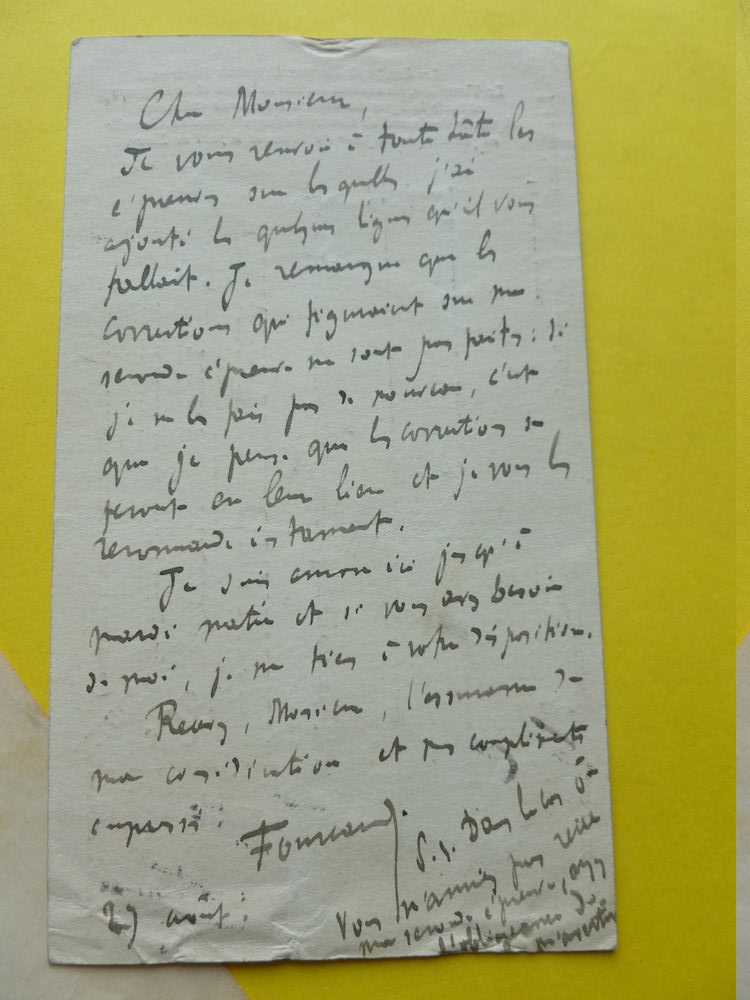 Cher Monsieur,
Je vous renvoie à toute hâte les
épreuves sur lesquelles j'ai
ajouté les quelques lignes qu'il vous
fallait. Je remarque que les
corrections qui figuraient sur ma
seconde épreuve ne sont pas faites : si
je ne les fais pas de nouveau, c'est
que je pense que les corrections se
feront en leur lieu et je vous les
recommande instamment.
Je suis encore ici jusqu'à
mardi matin et si vous avez besoin
de moi, je me tiens à votre disposition.
Recevez, Monsieur, l'assurance de
ma considération et mes compliments
empressés.
Fourcaud.
27 août.
P.S. Dans le cas où
Vous n'auriez pas reçu
ma seconde épreuve, ayez
l'obligeance de
m'avertir